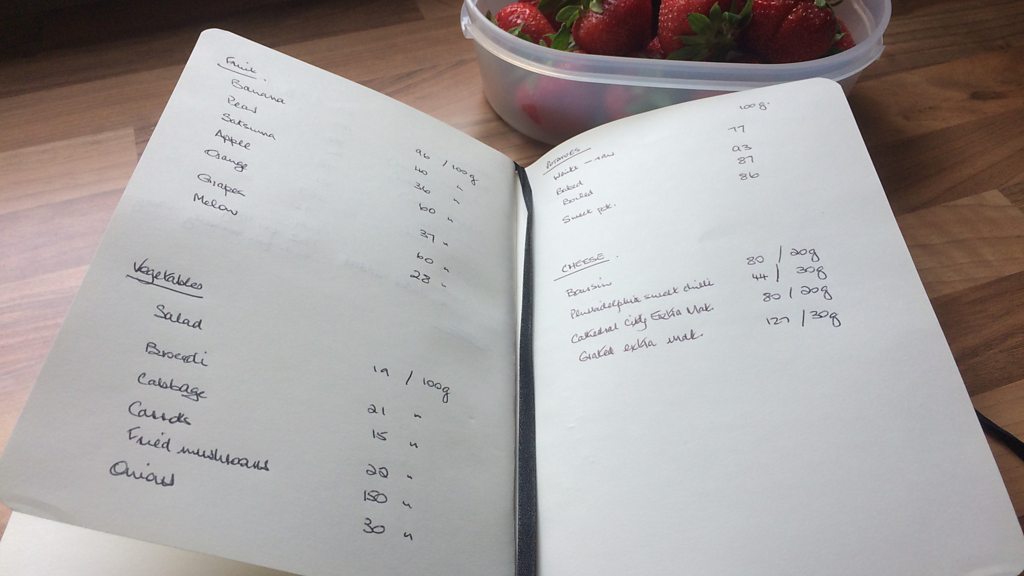 Fruit.
Banana 96 / 100g
Pear 40 "
Satsuma 36 "
Apple 60 "
Orange 37 "
Grapes 60 "
Melon 28 "
Vegetables
Salad 19 / 100g
Brocoli 21 "
Cabbage 15 "
Carrots 22 "
Fried mushrooms 150 "
Onions 30 "
POTATOES 100g.
raw 77
Baked 93
Boiled 87
Sweet pot. 86
CHEESE.
Boursin 80 / 20g
Philladelphia sweet chilli 44 / 30g
Cathedral City Extra Mat 80 / 20g
Grated extra mat. 127 / 30g